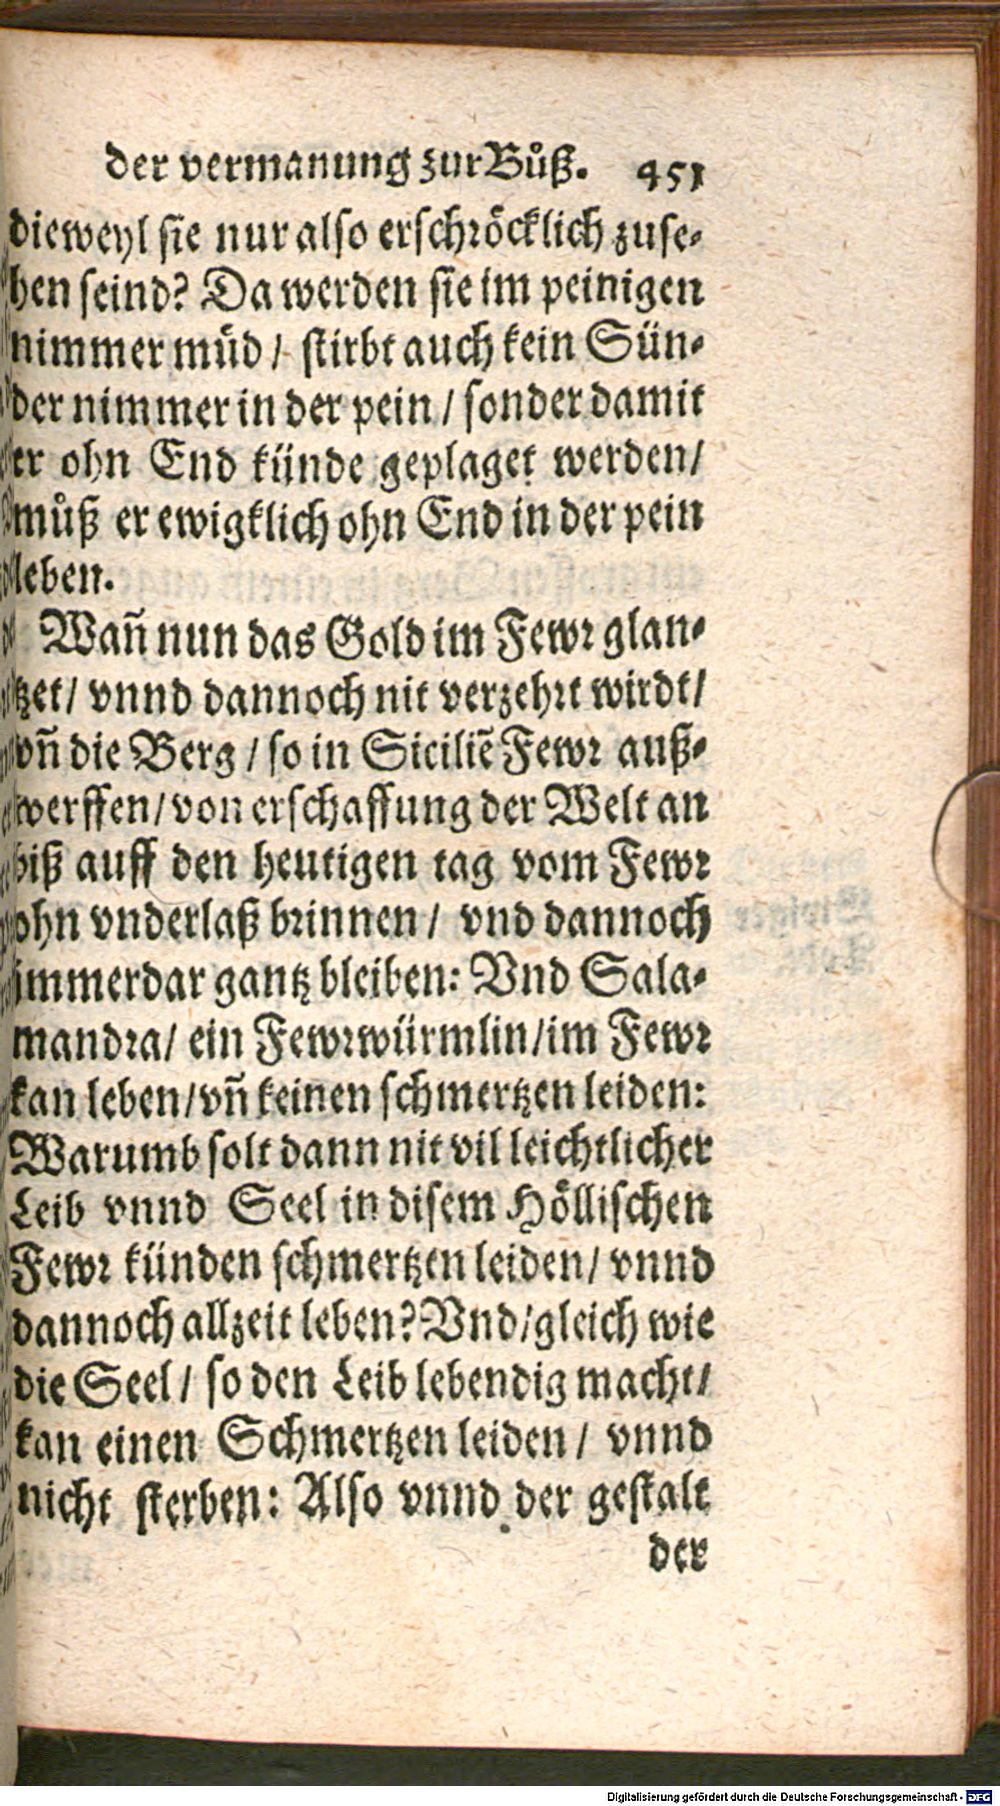 der vermanung zur Bůß. 451
dieweyl sie nur also erschröcklich zuse-
hen seind? Da werden sie im peinigen
nimmer müd / stirbt auch kein Sün-
der nimmer in der pein / sonder damit
er ohn End künde geplaget werden /
můß er ewigklich ohn End in der pein
leben.
Wañ nun das Gold im Fewr glan-
tzet / vnnd dannoch nit verzehrt wirdt /
vñ die Berg / so in Siciliẽ Fewr auß-
werffen / von erschaffung der Welt an
biß auff den heutigen tag vom Fewr
ohn vnderlaß brinnen / vnd dannoch
immerdar gantz bleiben: Vnd Sala-
mandra / ein Fewrwürmlin / im Fewr
kan leben / vñ keinen schmertzen leiden:
Warumb solt dann nit vil leichtlicher
Leib vnnd Seel in disem Höllischen
Fewr künden schmertzen leiden / vnnd
dannoch allzeit leben? Vnd / gleich wie
die Seel / so den Leib lebendig macht /
kan einen Schmertzen leiden / vnnd
nicht sterben: Also vnnd der gestalt
der
Digitalisierung gefördert durch die Deutsche Forschungsgemeinschaft - DFG